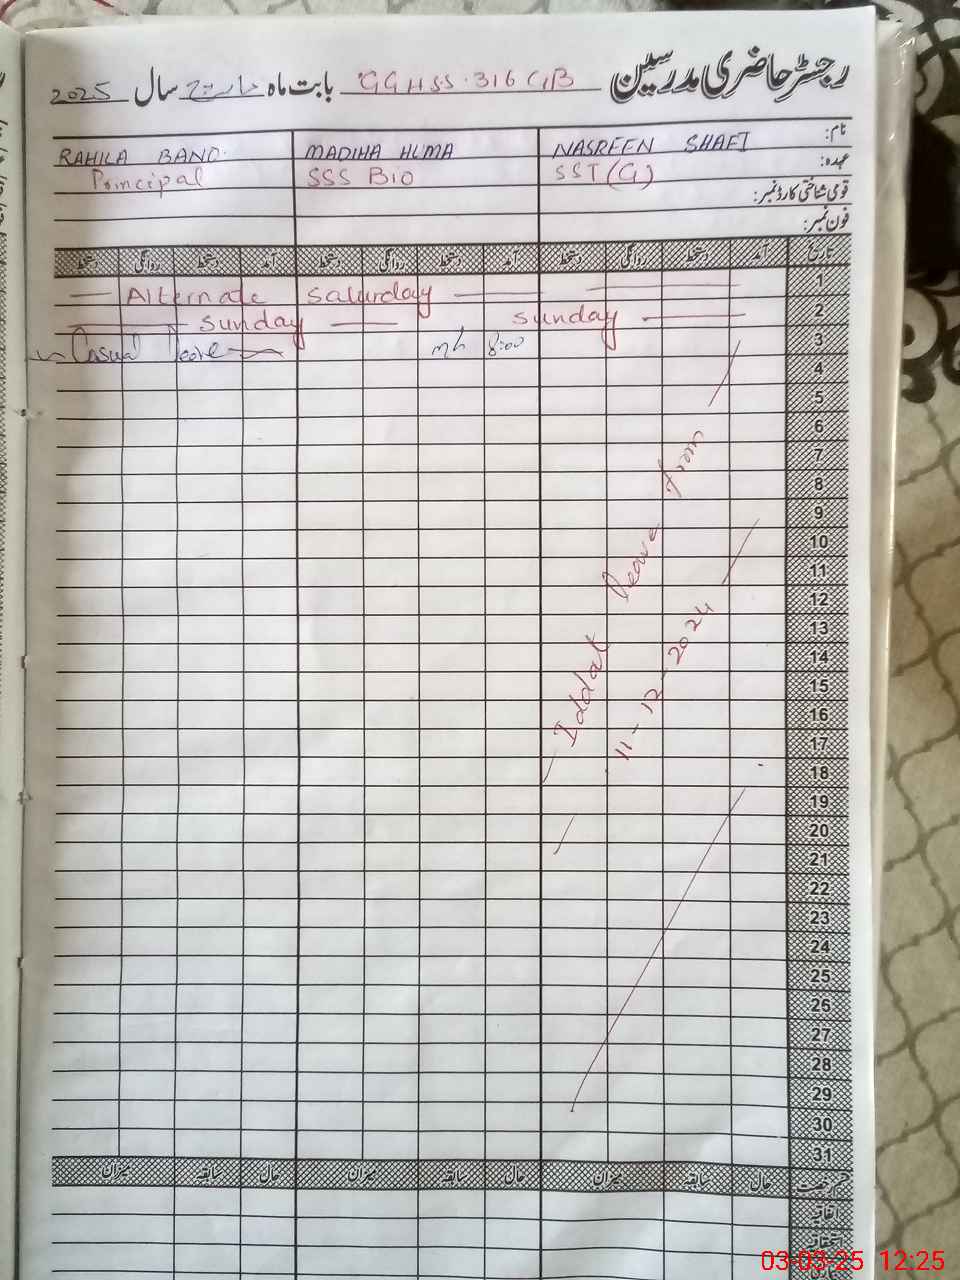 رجسٹر حاضری مدرسین GGHSS.316 GB بابت ماہ مارچ سال 2025
نام: NASREEN SHAFI MADIHA HUMA RAHILA BANO.
عہدہ: SST(G) SSS BIO Principal
قومی شناختی کارڈ نمبر:
فون نمبر:
تاریخ آمد دستخط روانگی دستخط آمد دستخط روانگی دستخط آمد دستخط روانگی دستخط
1 — Alternate Saturday —
2 — Sunday — Sunday —
3 Casual leave mh 8:00
4
5
6
7
8
9
10
11
12
13
14
15
16
17
18
19
20
21
22
23
24
25
26
27
28
29
30
31
Iddat leave from
11-12-2024
حال سابقہ میزان حال سابقہ میزان حال سابقہ میزان
اتفاقیہ
03-03-25 12:25